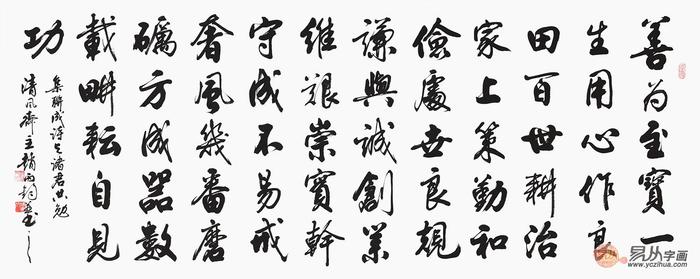 善為至寶一
生用心作良
田百世耕治
家上策勤和
儉處世良規
謙與誠創業
維艱崇實幹
守成不易戒
奢風幾番磨
礪方成器數
載耕耘自見
功
集聯成詩與諸君共勉
清風齋主趙
易从字画
www.yczihua.com